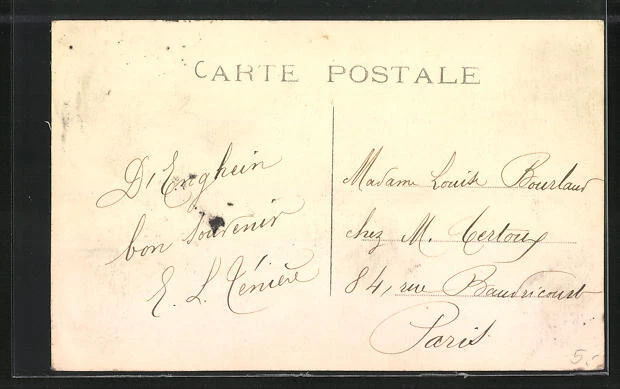 CARTE POSTALE
D'Enghein
bon souvenir
E. L. Ténière
Madame Louise Bourlaud
chez M. Certoux
84, rue Baudricourt
Paris
5.-